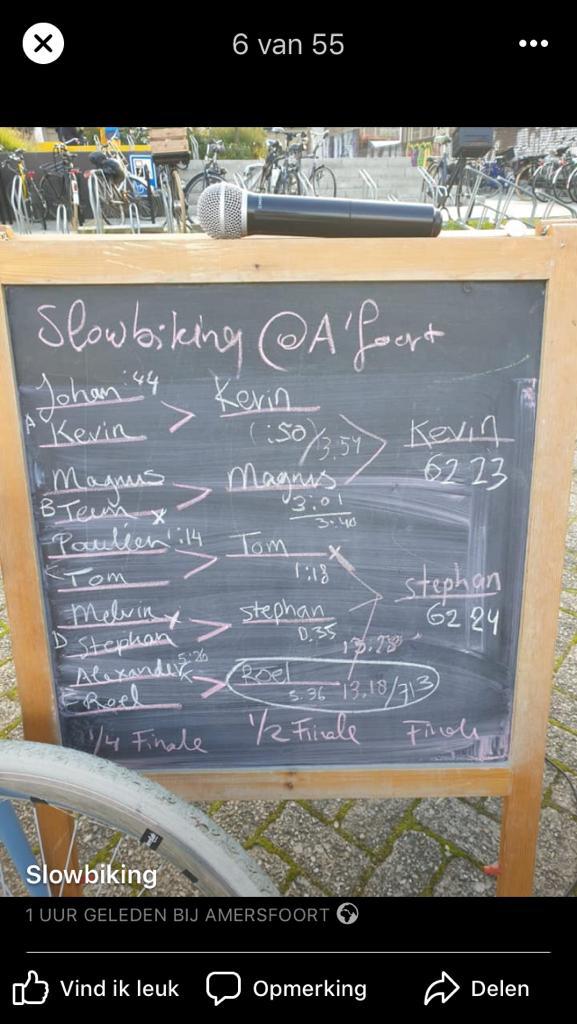 6 van 55
Slowbiking @A'foort
Johan :44
A Kevin
Kevin
(:50)/3.54
Kevin
62 23
Magnus
B Teun x
Magnus
3:01
3:40
Paulien 1:14
Tom
Tom x
1:18
Stephan
62 24
Melvin x
D Stephan
Stephan
0.35
13.28
Alexander 5:26
E Roel
Roel
5.36 13.18/713
1/4 Finale
1/2 Finale
Finale
Slowbiking
1 UUR GELEDEN BIJ AMERSFOORT
Vind ik leuk
Opmerking
Delen